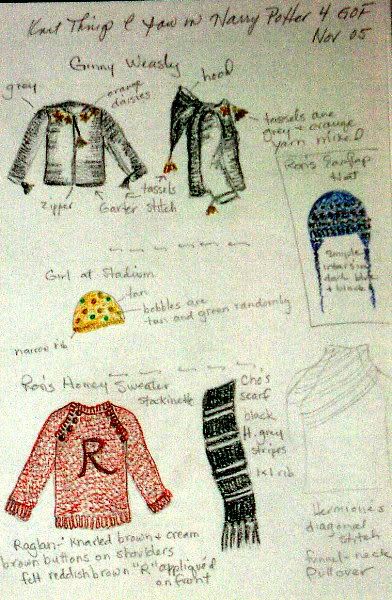 Knit Things I Saw in Harry Potter 4 GOF
Nov 05
Ginny Weasly
grey
orange
daisies
hood
tassels are
grey & orange
yarn mixed
tassels
zipper
Garter stitch
Ron's Earflap
Hat
simple
intarsia
dark blue
& black
Girl at Stadium
tan
bobbles are
tan and green randomly
narrow rib
Ron's Homey Sweater
stockinette
R
Raglan - Knarled brown & cream
brown buttons on shoulders
felt reddish brown "R" appliquéd
on front
Cho's
scarf
black
H. grey
stripes
1x1 rib
Hermione's
diagonal
stitch
funnel-neck
Pullover